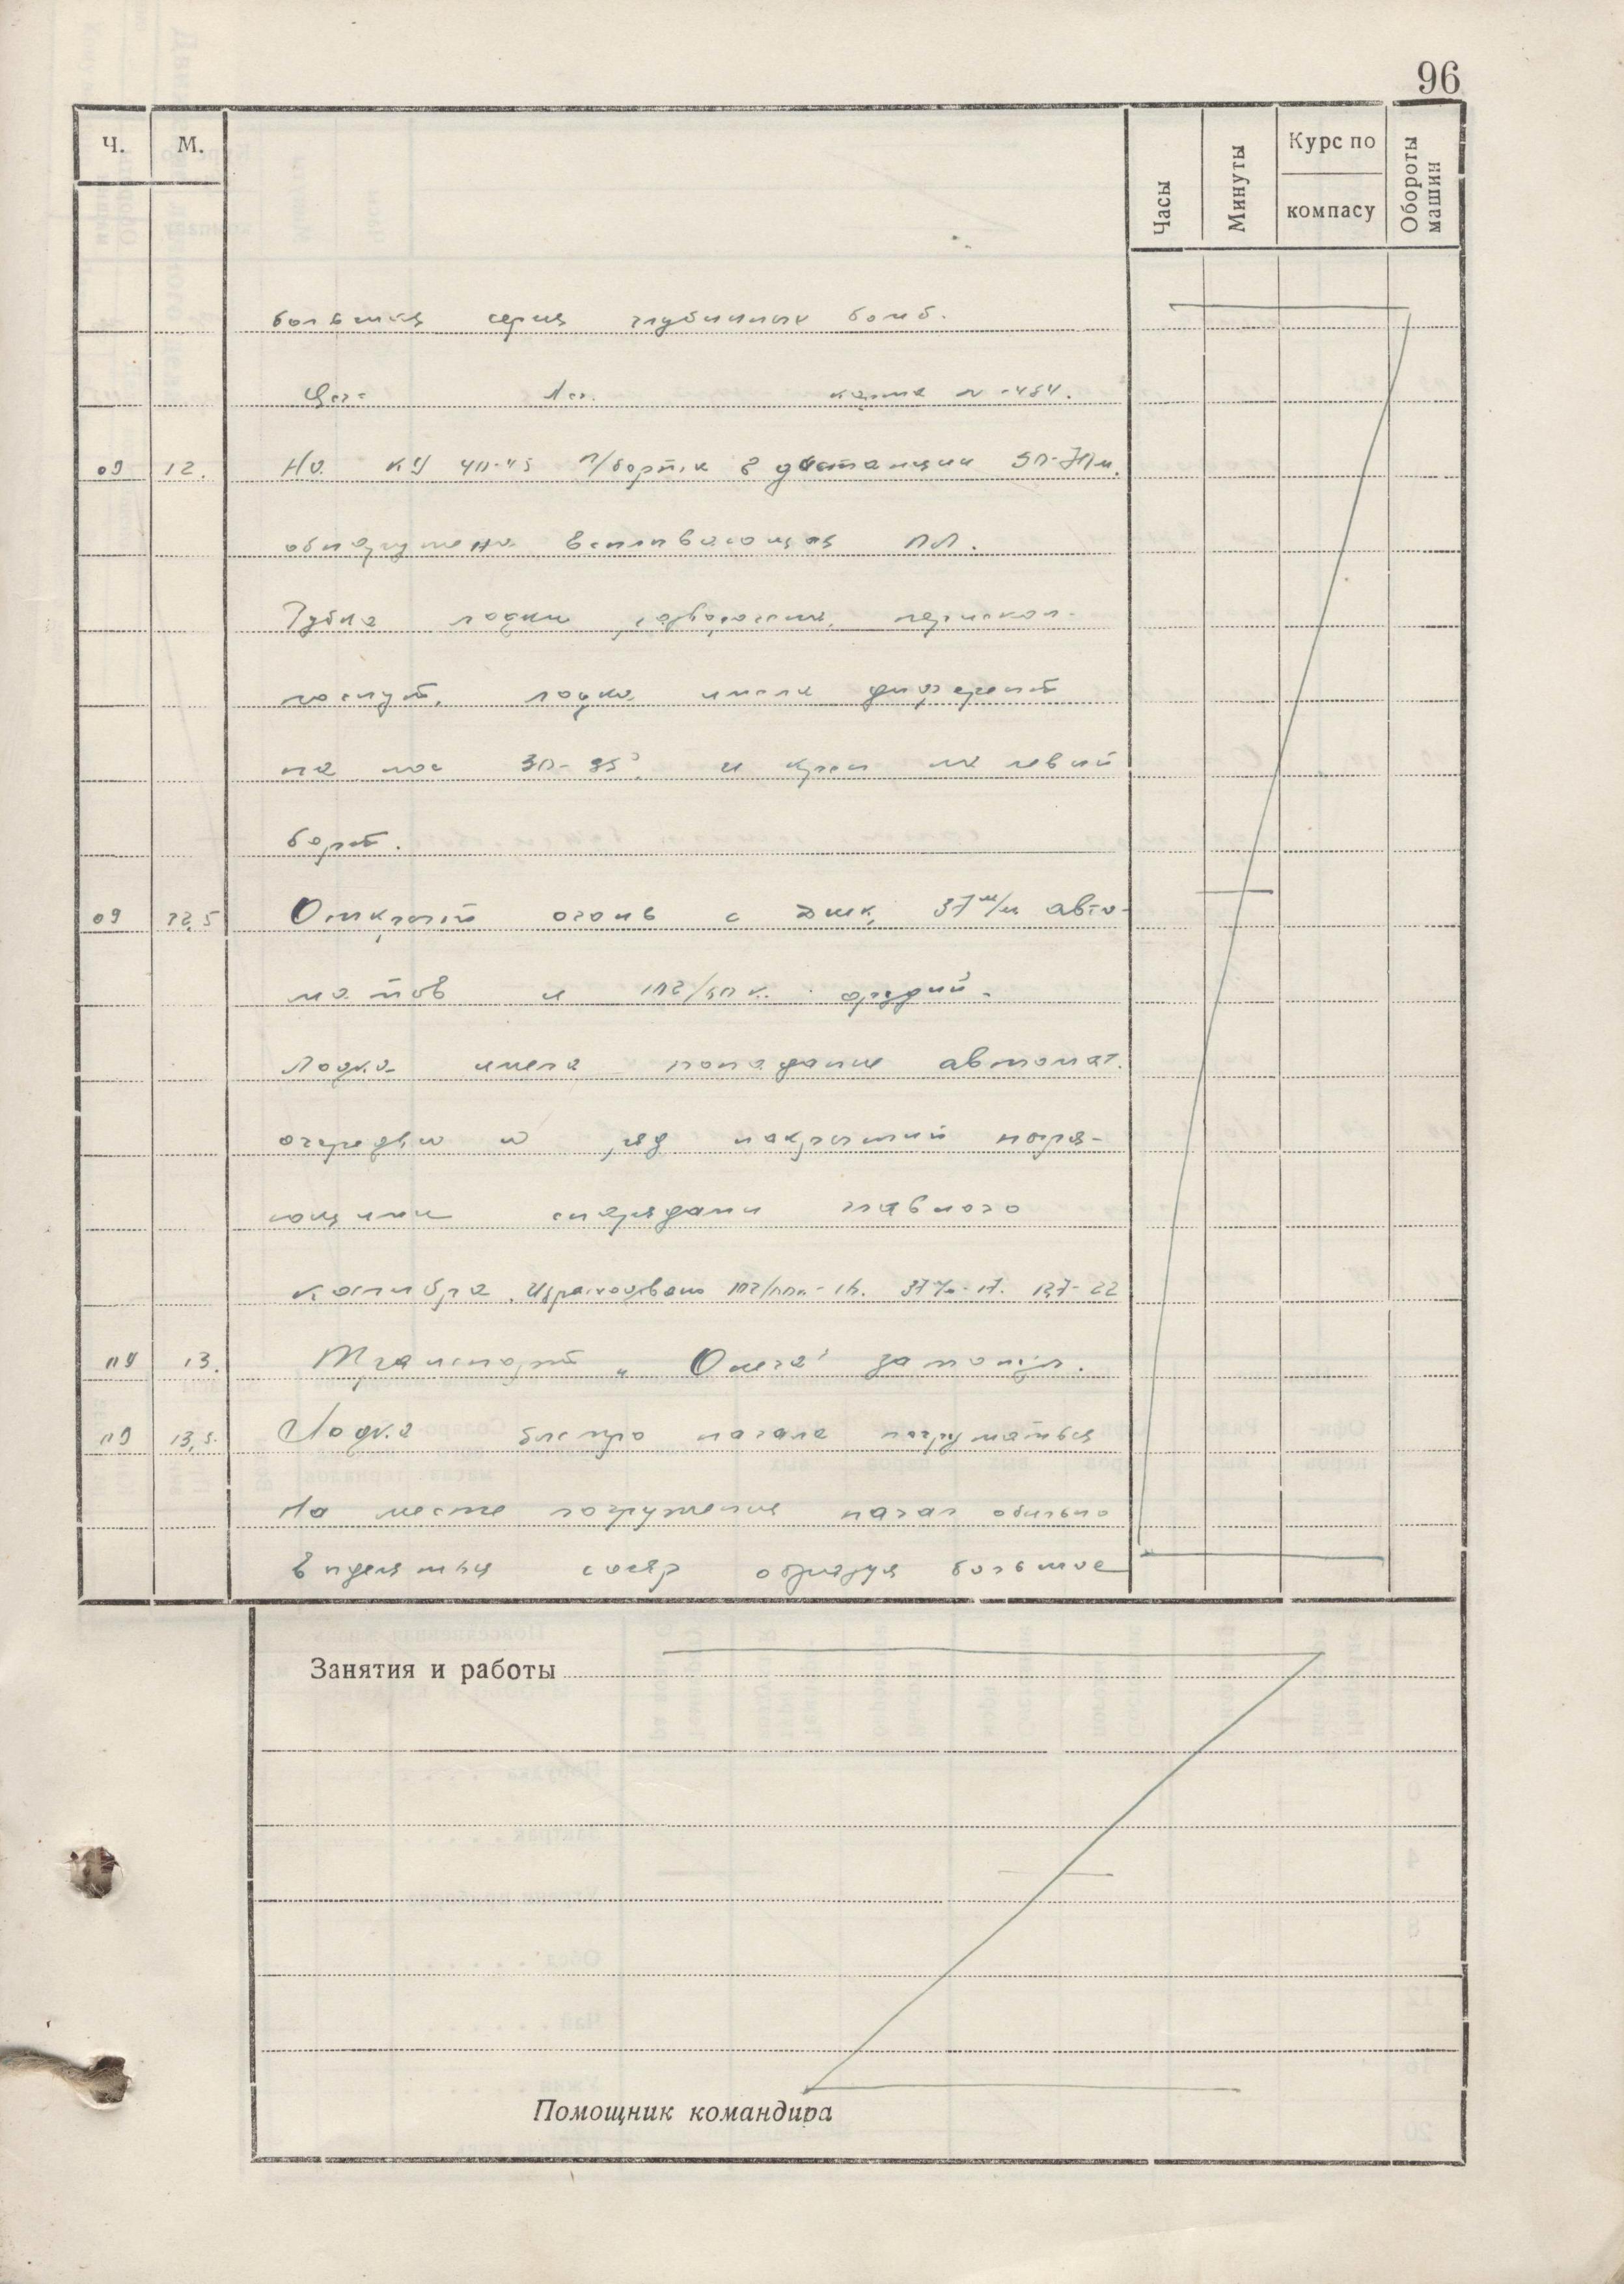 96
Ч. М. Часы Минуты Курс по компасу Обороты машин
большая серия глубинных бомб.
карта N-484.
09 12. На КУ 40-45 п/борт, в дистанции 50-70 м.
обнаружена всплывающая ПЛ.
Рубка лодки перископ
лодка имела дифферент
на нос 30-35° и крен на левый
борт.
09 12,5 Открыт огонь с ДШК, 37 м/м авто-
матов и 102/ орудий.
Лодка имела попадание автомат.
очередью и ряд накрытий ныря-
ющими снарядами главного
калибра. Израсходовано 37 м/м-17. 127-22
09 13. Транспорт „Онега" затонул.
09 13,5. Лодка быстро начала погружаться
На месте погружения начал обильно
выделяться соляр образуя большое
Занятия и работы
Помощник командира